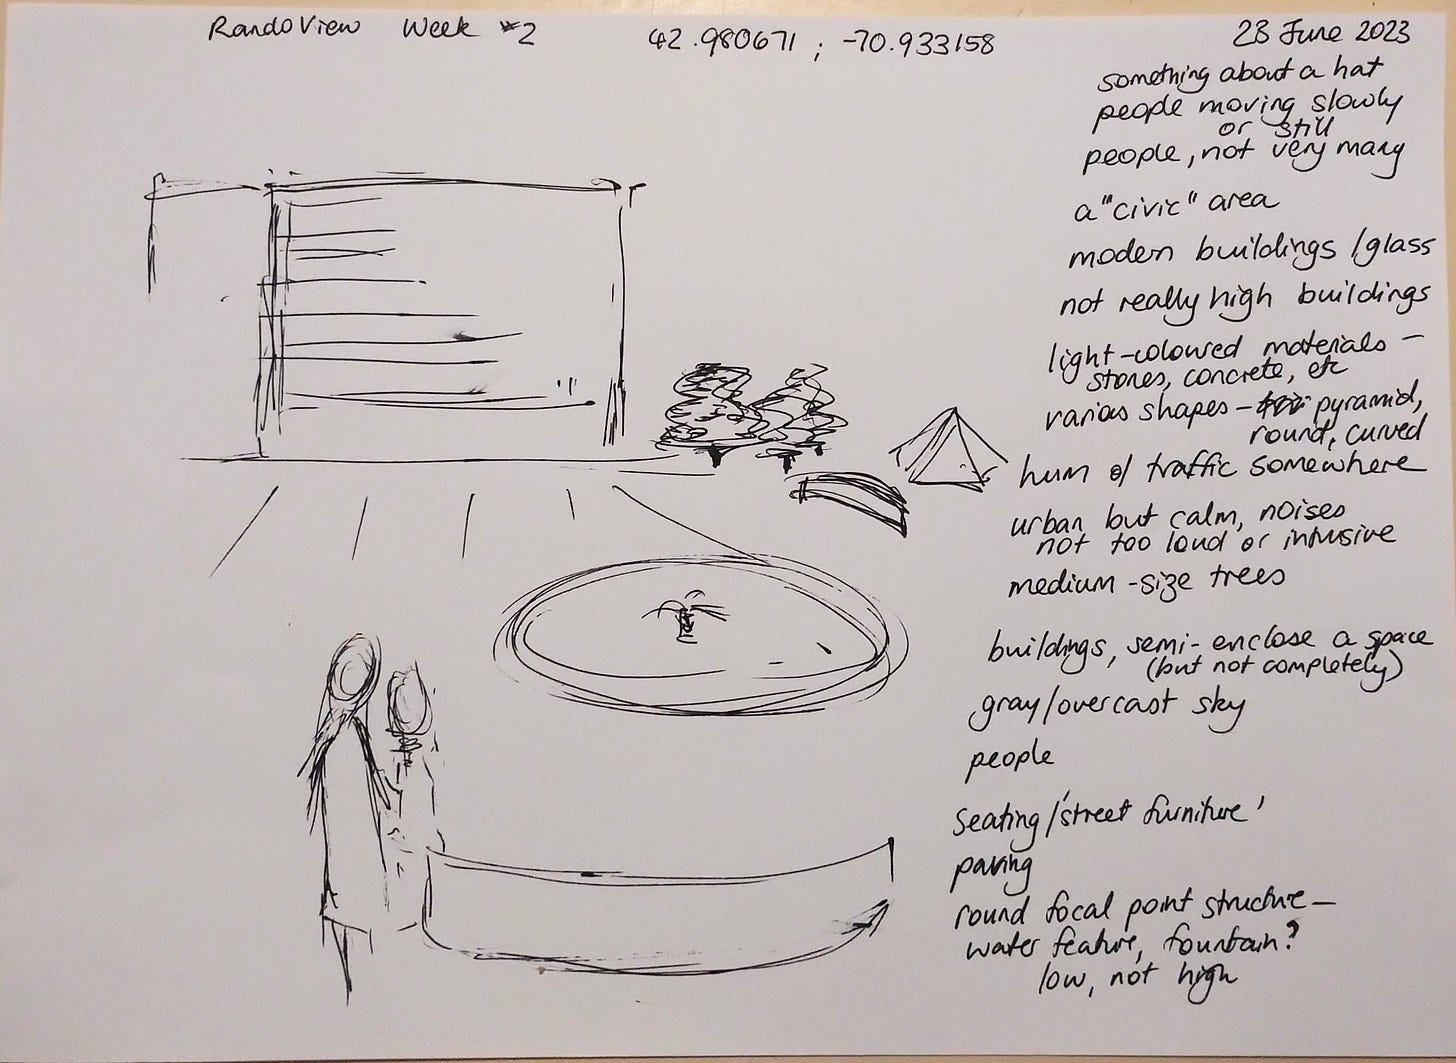 RandoView Week #2 42.980671 ; -70.933158 23 June 2023
something about a hat
people moving slowly
or still
people, not very many
a "civic" area
modern buildings / glass
not really high buildings
light-coloured materials –
stones, concrete, etc
various shapes – pyramid,
round, curved
hum of traffic somewhere
urban but calm, noises
not too loud or intrusive
medium-size trees
buildings, semi-enclose a space
(but not completely)
gray/overcast sky
people
seating/'street furniture'
paving
round focal point structure –
water feature, fountain?
low, not high